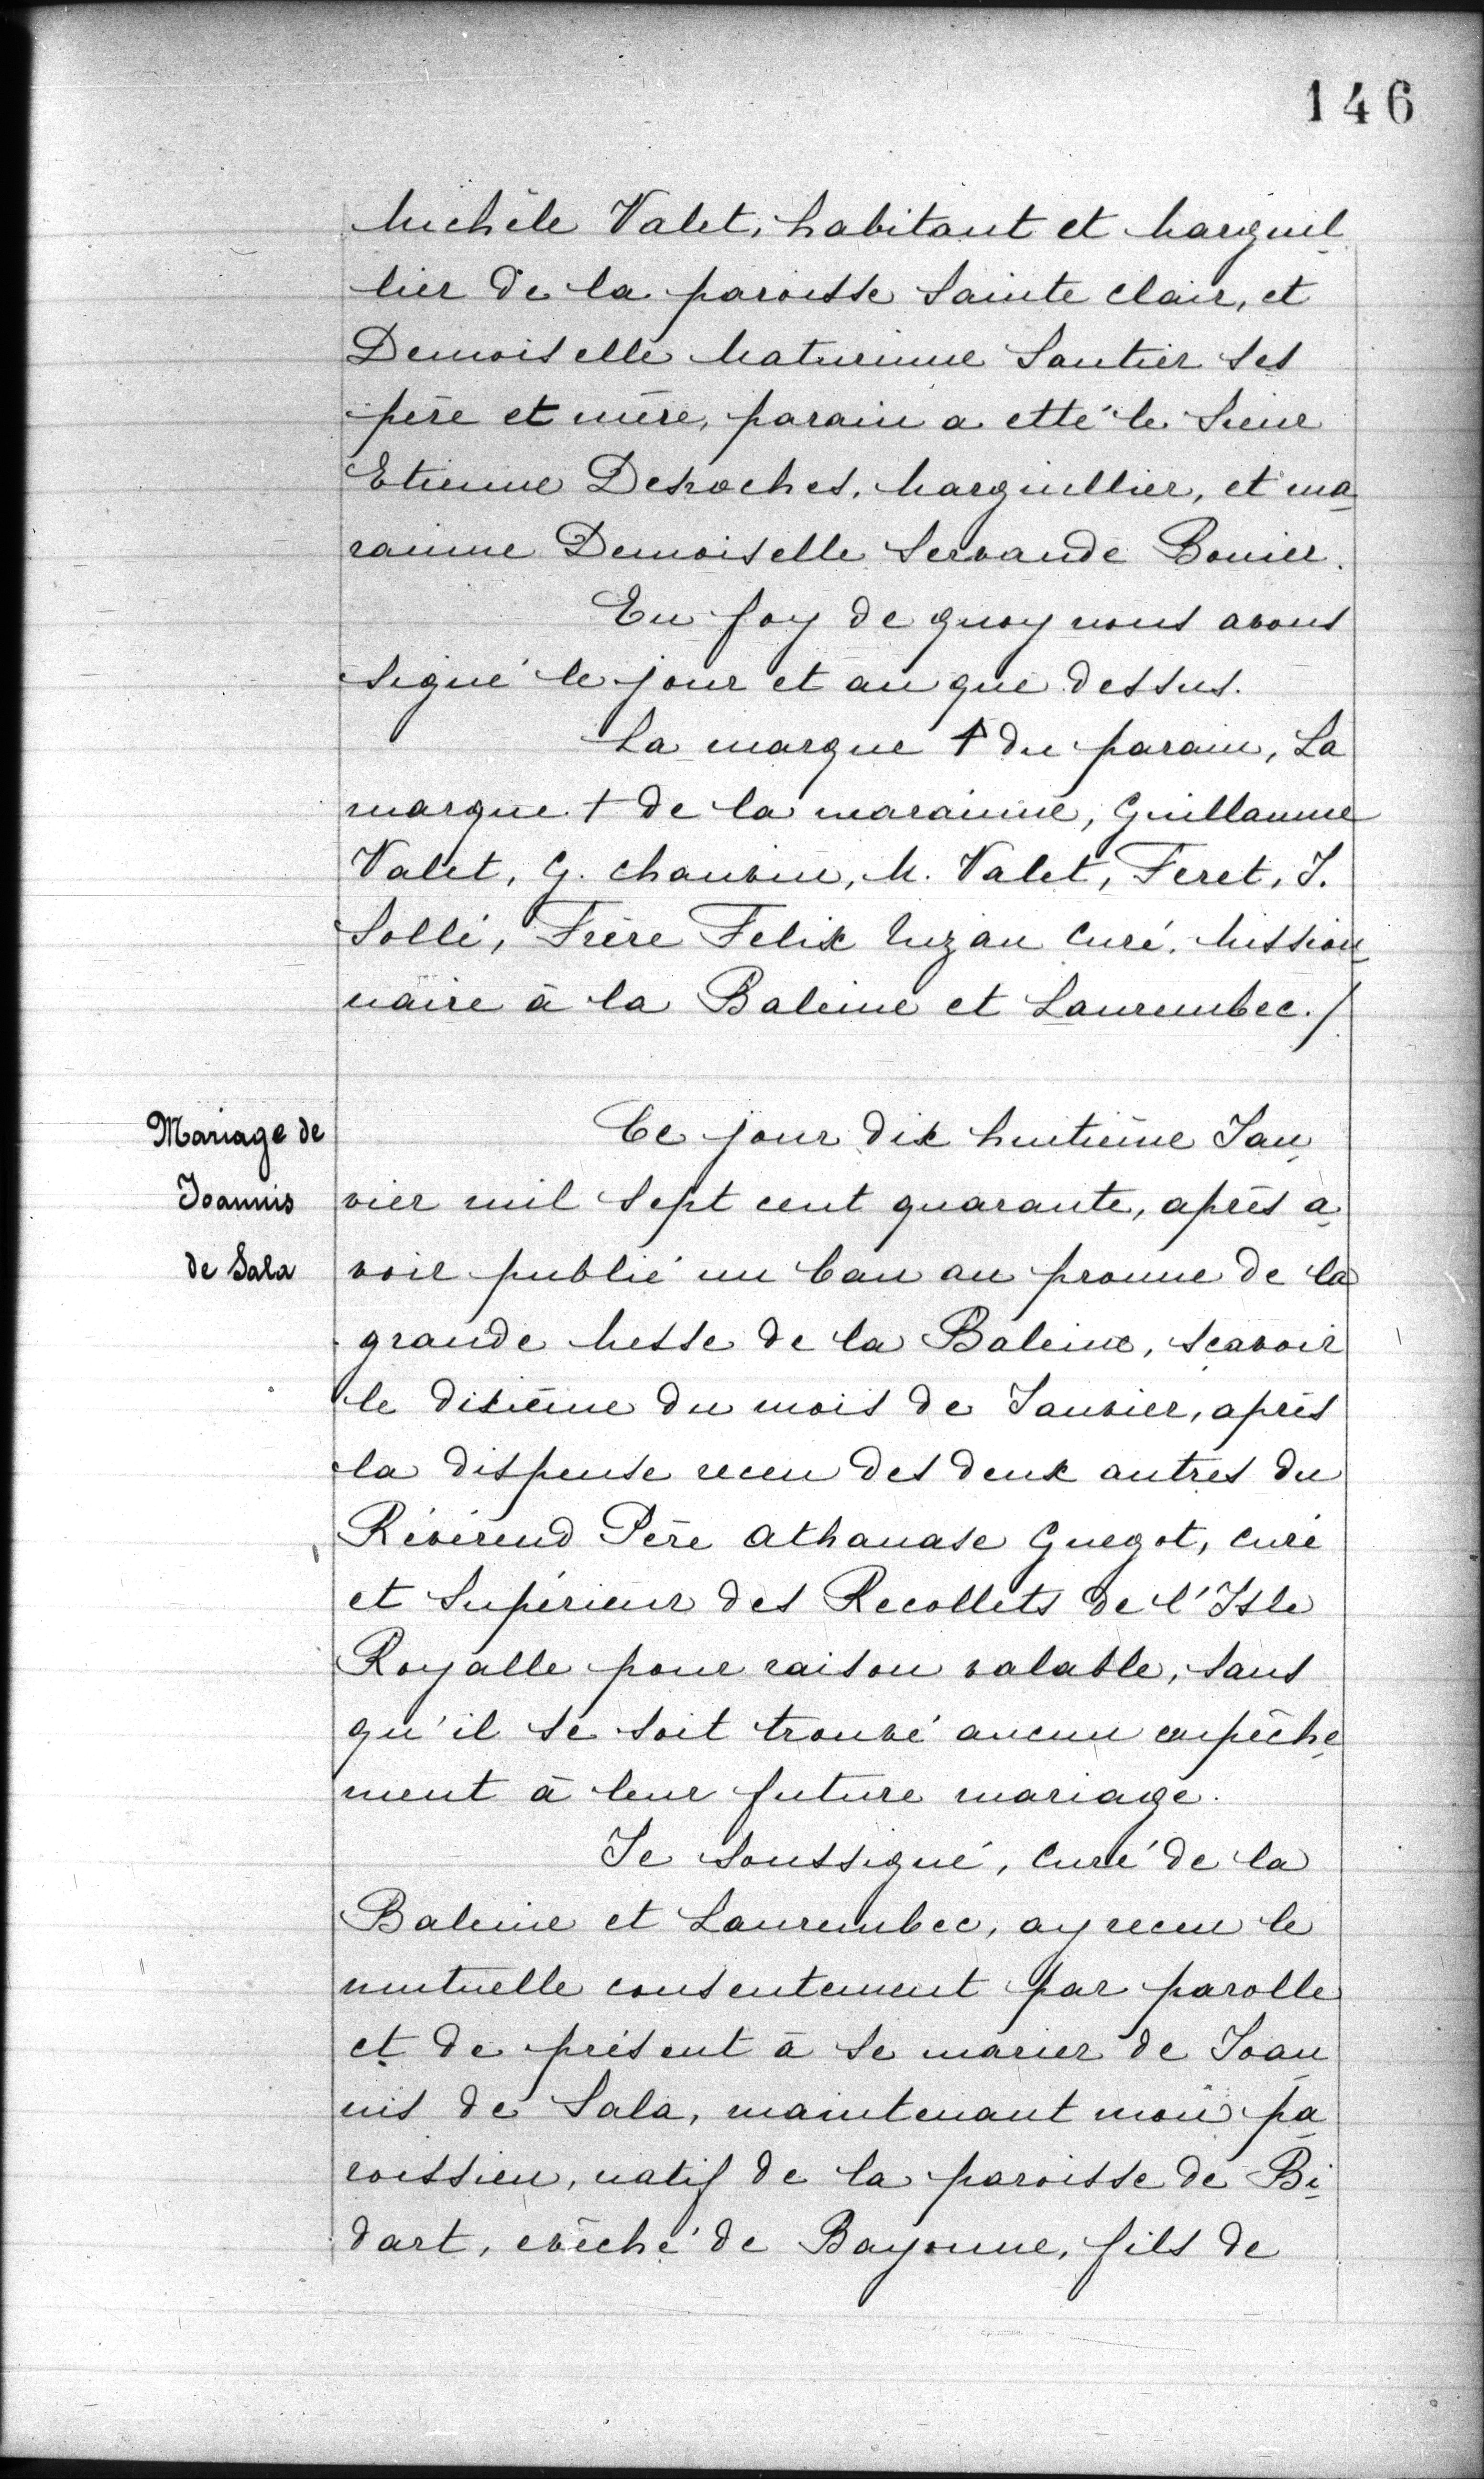 146
Michèle Valet, habitant et Marguil
lier de la paroisse Sainte Clair, et
Demoiselle Maturinne Santier ses
père et mère, parain a etté le Sieur
Etienne Desroches, Marguillier, et ma
rainne Demoiselle Servande Bonier.
En foy de quoy nous avons
signé le jour et an que dessus.
La marque † du parain, La
marque † de la marainne, Guillaume
Valet, G. Chauvin, M. Valet, Feret, J.
Sollé, Frère Felix Luzan Curé. Mission
naire à la Baleine et Laurembec./
Mariage de
Joannis
de Sala
Ce jour dix huitième Jan
vier mil Sept cent quarante, après a
voir publié un ban au pronne de la
grande Messe de la Baleine, sçavoir
le dixième du mois de Janvier, après
la dispense receu des deux autres du
Révérend Père Athanase Guegot, curé
et Supérieur des Recollets de l'Isle
Royalle pour raison valable, sans
qu'il se soit trouvé aucun empêche
ment à leur future mariage.
Je Soussigné, Curé de la
Baleine et Laurembec, ay receu le
mutuelle consentement par parolle
et de présent à se marier de Joan
nis de Sala, maintenant mon pa
roissien, natif de la paroisse de Bi
dart, evêché de Bayonne, fils de